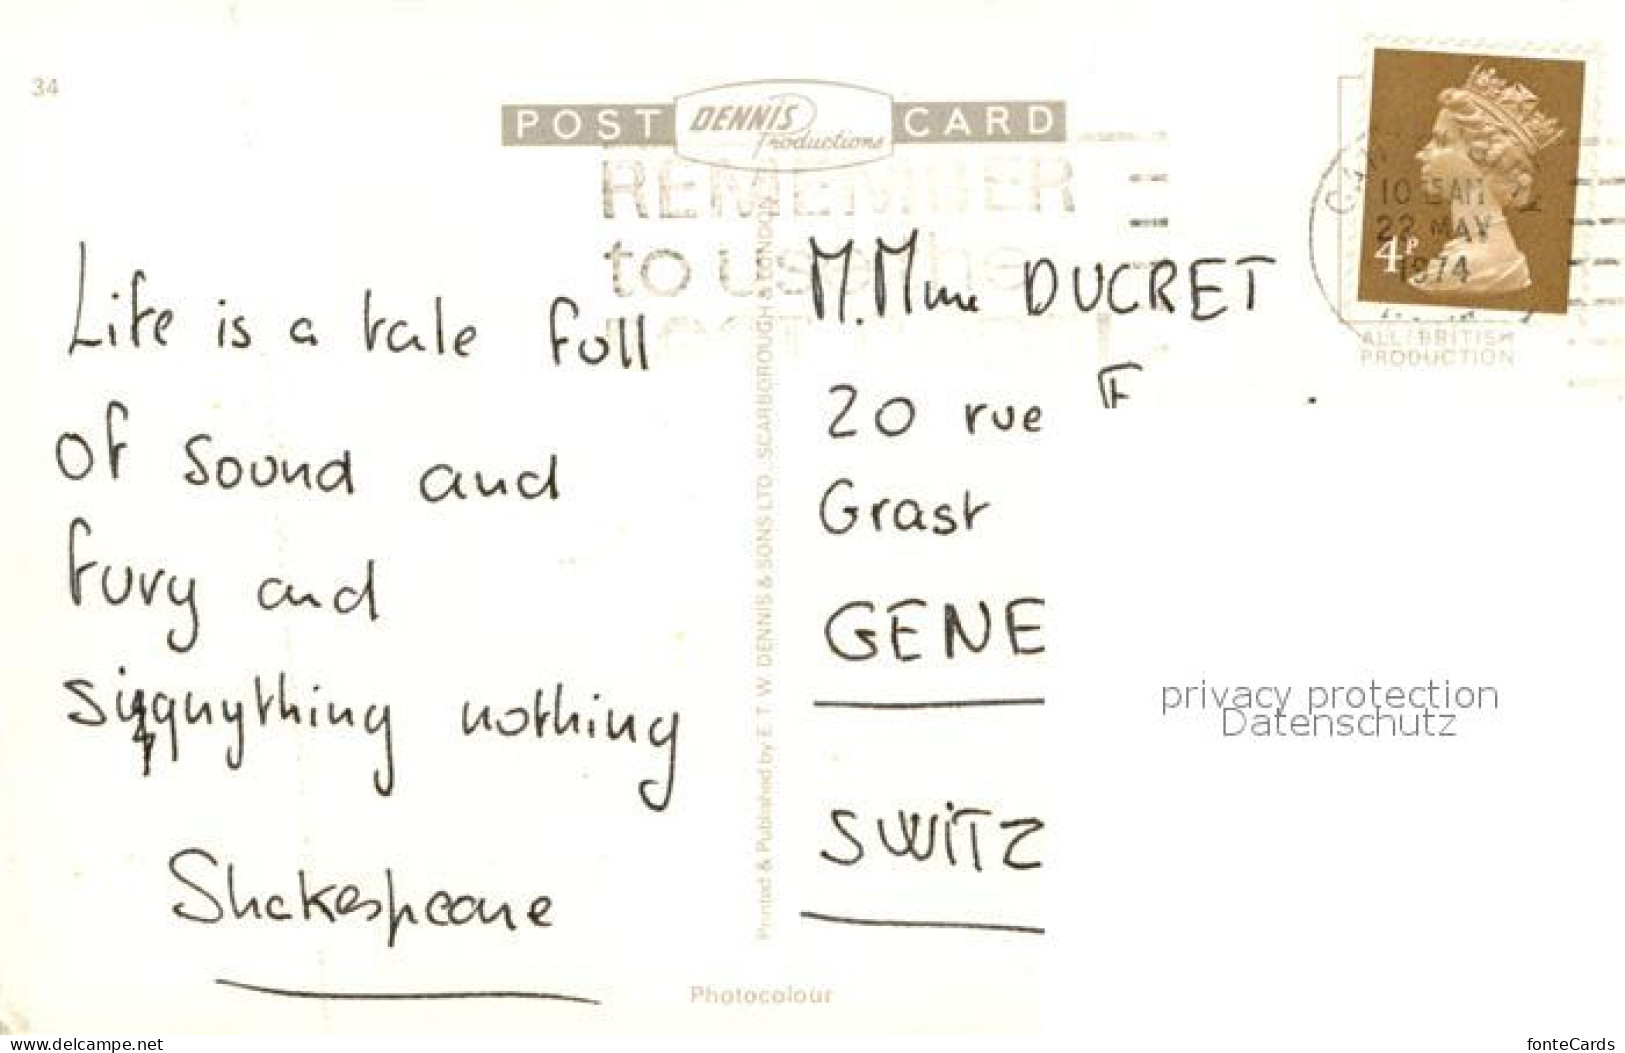 34
POST DENNIS Productions CARD
REMEMBER
to use the
10 15 AM
22 MAY
1974
4P
ALL/BRITISH
PRODUCTION
Life is a tale full
of sound and
fury and
siggnything nothing
Shakespeare
Printed & Published by E. T. W. DENNIS & SONS LTD. SCARBOROUGH & LONDON
M.Mme DUCRET
20 rue F
Grast
GENE
SWITZ
privacy protection
Datenschutz
Photocolour
www.delcampe.net
fonteCards